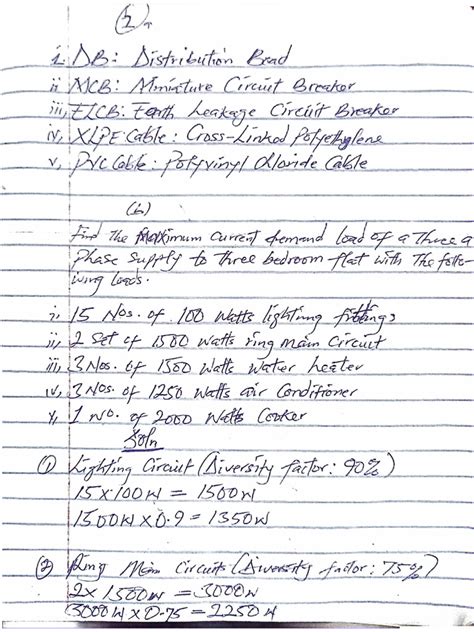 (2)
i. DB: Distribution Bread
ii, MCB: Miniature Circuit Breaker
iii, ELCB: Earth Leakage Circuit Breaker
iv, XLPE Cable: Cross-Linked Polyethylene
v, PVC Cable: Polyvinyl Chloride Cable
(b)
Find The Maximum Current demand load of a Three a
Phase Supply to three bedroom flat with The follo-
wing loads.
i, 15 Nos. of 100 Watts lighting fittings
ii, 2 Set of 1500 watts ring main Circuit
iii, 3 Nos. of 1500 Watts water heater
iv, 3 Nos. of 1250 Watts air Conditioner
v, 1 no. of 2000 Watts Cooker
Soln
(1) Lighting Circuit (Diversity factor: 90%)
15x100w = 1500w
1500w x 0.9 = 1350w
(2) Ring Main Circuits (Diversity factor: 75%)
2x 1500w = 3000w
3000w x 0.75 = 2250w